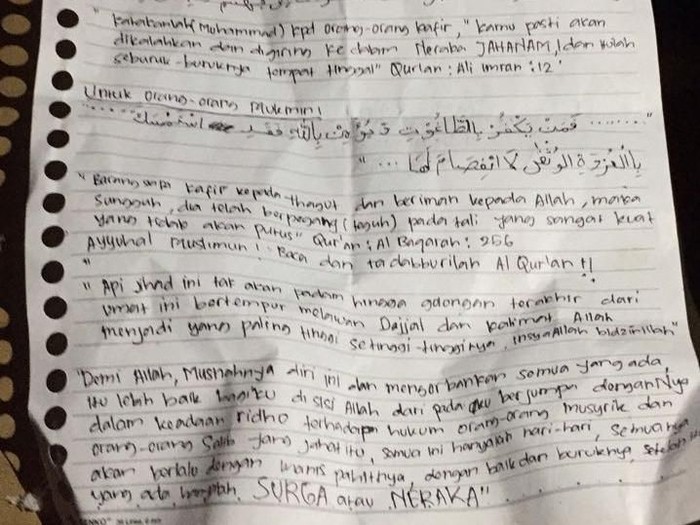 "Katakanlah (Muhammad) kpd orang-orang kafir, "kamu pasti akan
dikalahkan dan digiring ke dalam Neraka JAHANAM, dan itulah
seburuk-buruknya tempat tinggal" Qur'an : Ali imran : 12
Untuk orang-orang Mukmin!
"........ فَمَنْ يَكْفُرْ بِالطَّاغُوْتِ وَيُؤْمِنْ بِاللّٰهِ فَقَدِ اسْتَمْسَكَ
بِالْعُرْوَةِ الْوُثْقٰى لَا انْفِصَامَ لَهَا ... "
"Barang siapa kafir kepada thagut dan beriman kepada Allah, maka
sungguh, dia telah berpegang (teguh) pada tali yang sangat kuat
yang tidak akan putus" Qur'an : Al Baqarah : 256
Ayyuhal Muslimun! Baca dan tadabburilah Al Qur'an !!
"
"Api jihad ini tak akan padam hingga golongan terakhir dari
umat ini bertempur melawan Dajjal dan kalimat Allah
menjadi yang paling tinggi setinggi-tingginya, insyaAllah bidznillah"
"Demi Allah, Musnahnya diri ini dan mengorbankan semua yang ada,
itu lebih baik bagiku di sisi Allah dari pada aku berjumpa denganNya
dalam keadaan ridho terhadap hukum orang-orang musyrik dan
orang-orang Salib yang jahat itu, semua ini hanyalah hari-hari, semuanya
akan berlalu dengan manis pahitnya, dengan baik dan buruknya, setelah
yang ada hanyalah SURGA atau NERAKA" . . . . . . .